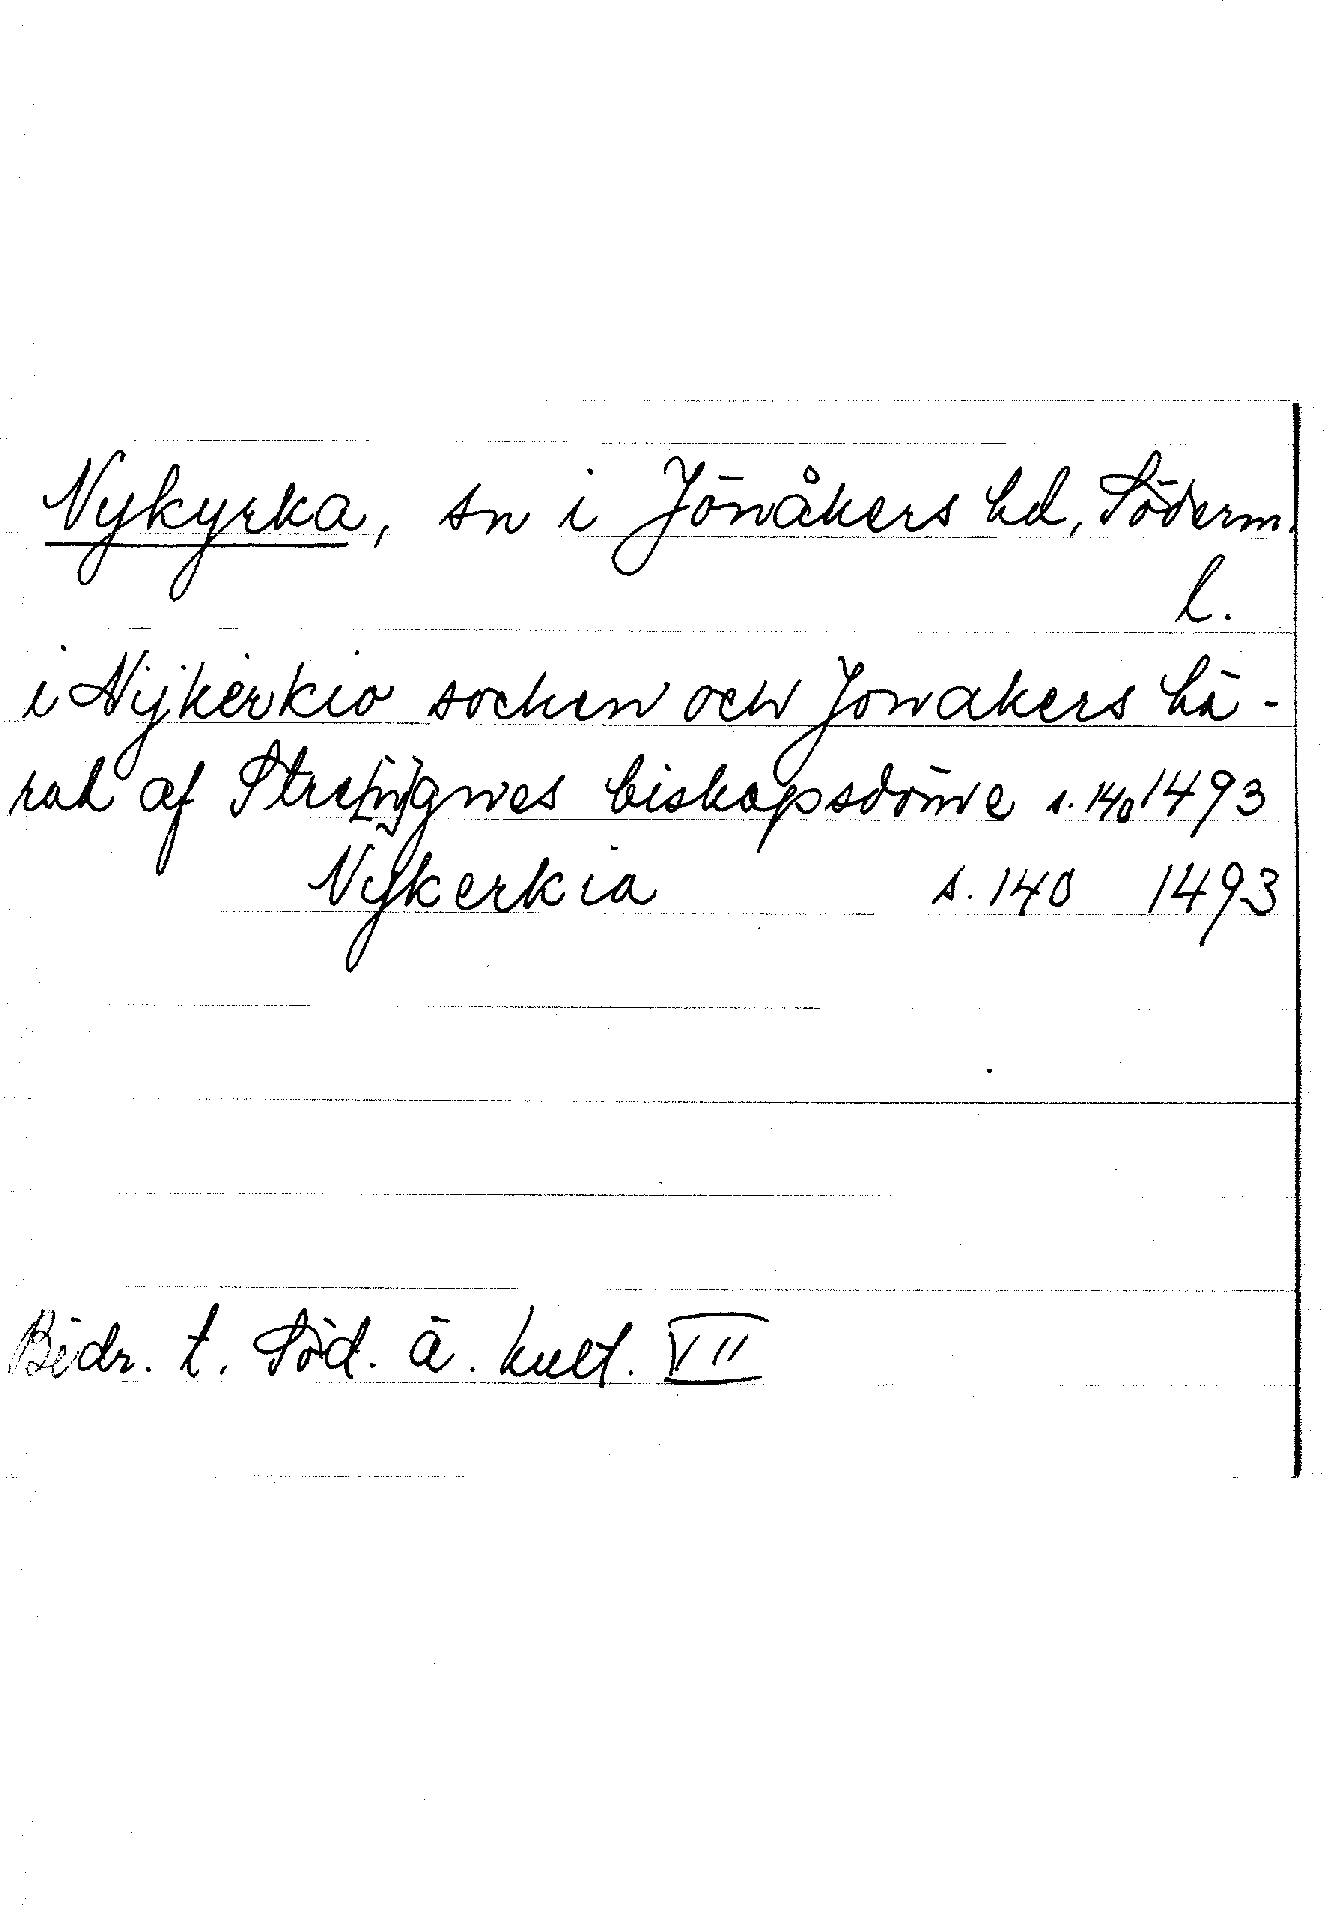 Nykyrka, sn i Jönåkers hd, Söderm.
l.
i Nijkerkio socken och Jonakers hä-
rad af Stre[n]gnes biskopsdöme s. 140 1493
Nykerkia s. 140 1493
Bidr. t. Söd. ä. kult. VII